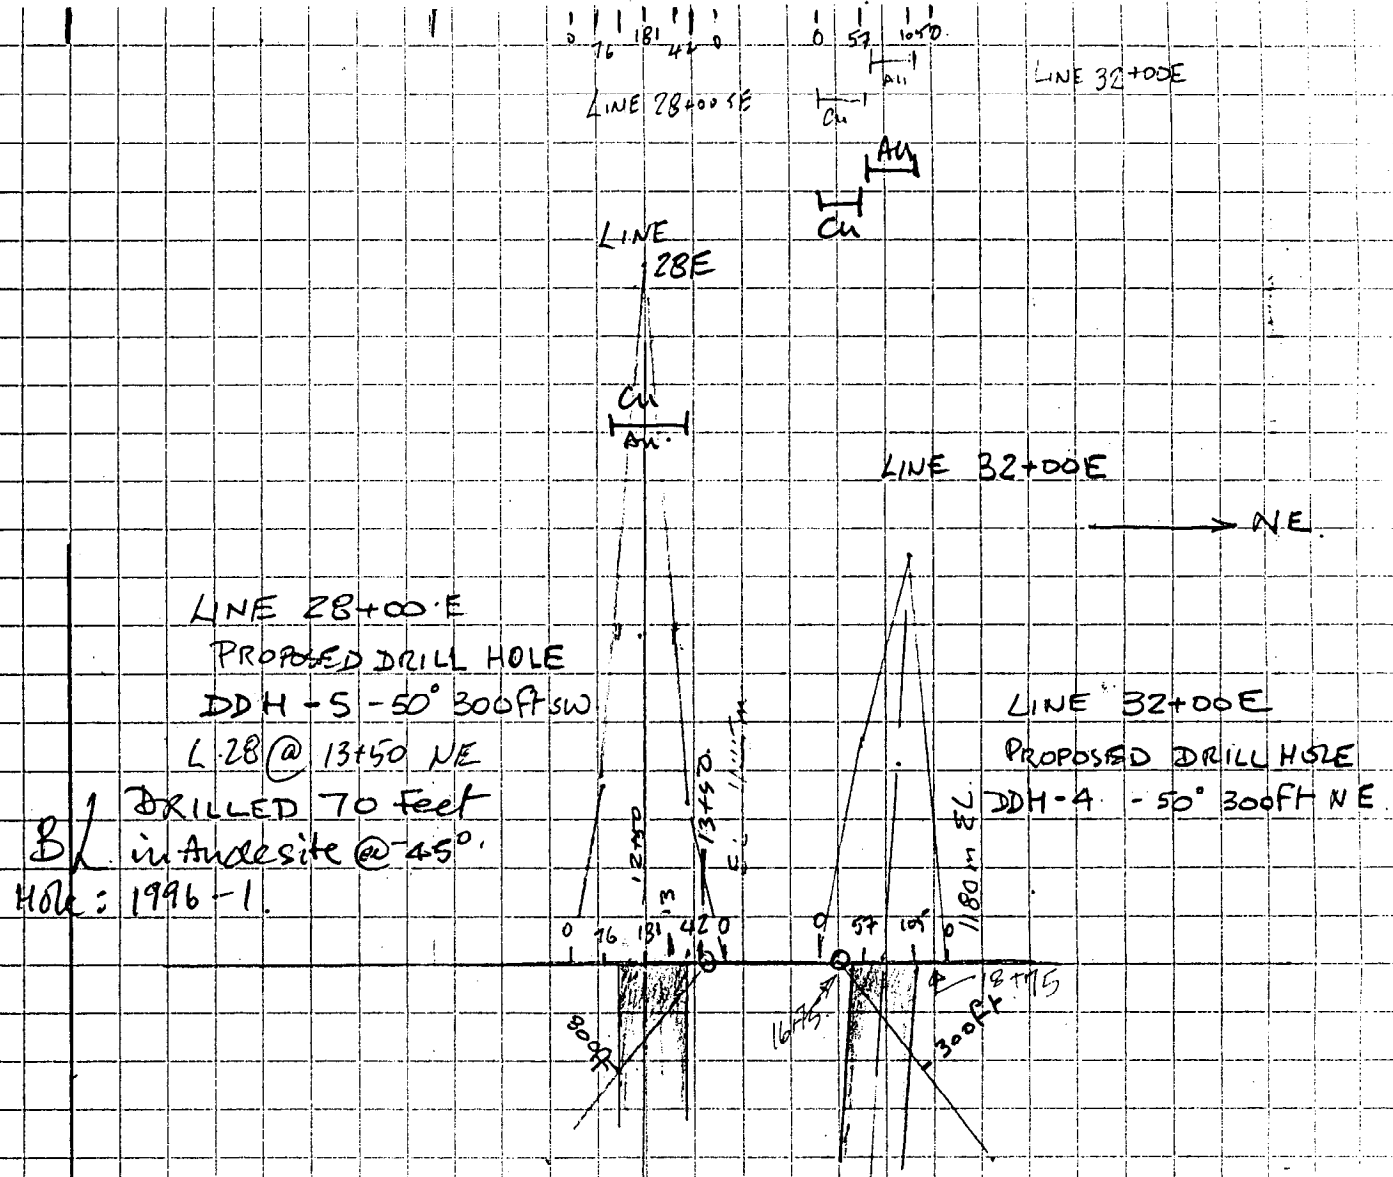 0 76 181 42 0
0 57 105 0
Au
LINE 32+00E
LINE 28+00 E
Cu
Au
Cu
LINE
28E
Cu
Au.
LINE 32+00E
NE.
LINE 28+00.E
PROPOSED DRILL HOLE
DDH-5 -50° 300ft SW
L.28 @ 13+50 NE
DRILLED 70 Feet
B/L in Andesite @ -45°.
Hole: 1996-1.
LINE 32+00E
PROPOSED DRILL HOLE
DDH-4 -50° 300FT NE
12+50
13+50.
1180m EL.
0 76 181 13 42 0
0 57 105 0
16+75.
18+75
300ft
300ft